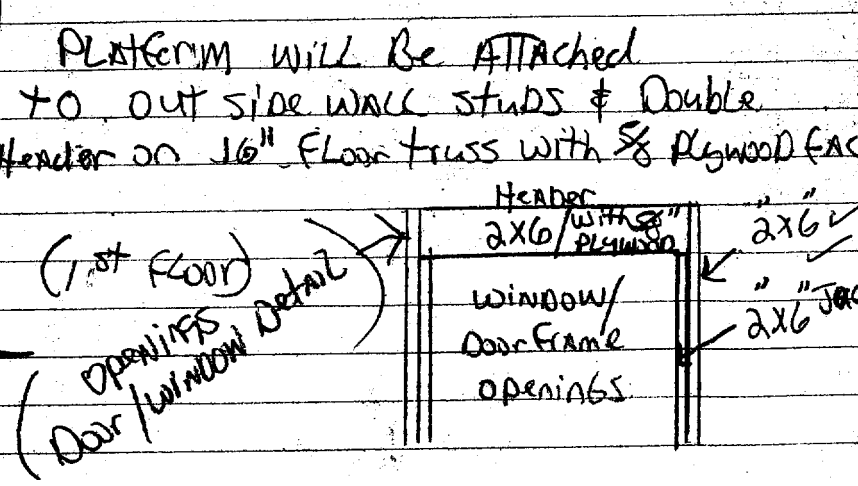 PLATForM WiLL Be ATTAched
to out side WALL studs & Double
Header on 16" FLoor truss with 5/8 PLywooD FAC
Header
2x6/with 5/8" PLywooD
"2x6"
(1st FLoor)
openings
Door/WiNDOW DetAiL
WiNDOW/
Door FrAMe
openiNGS
"2x6" JAC